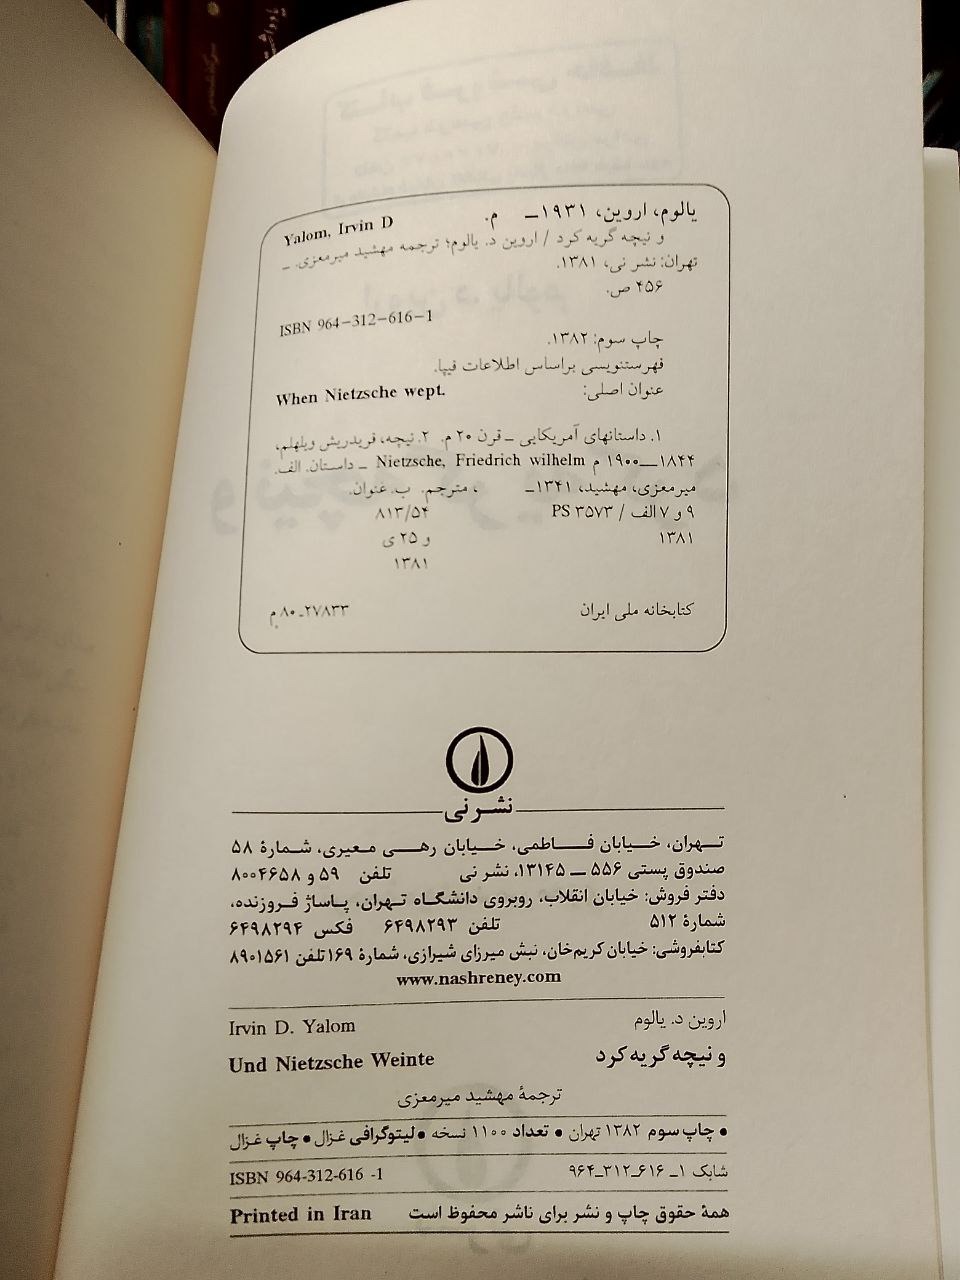 یالوم، اروین، ۱۹۳۱ـ م. Yalom, Irvin D
و نیچه گریه کرد / اروین د. یالوم؛ ترجمه مهشید میرمعزی. ـ
تهران: نشر نی، ۱۳۸۱.
۴۵۶ ص.
ISBN 964-312-616-1
چاپ سوم: ۱۳۸۲.
فهرستنویسی براساس اطلاعات فیپا.
عنوان اصلی: When Nietzsche wept.
۱. داستانهای آمریکایی ـ قرن ۲۰ م. ۲. نیچه، فریدریش ویلهلم،
۱۸۴۴ــ۱۹۰۰ م Nietzsche, Friedrich wilhelm ـ داستان. الف.
میرمعزی، مهشید، ۱۳۴۱ـ ، مترجم. ب. عنوان.
۹ و ۷ الف / PS ۳۵۷۳ ۸۱۳/۵۴
۱۳۸۱ و ۲۵ ی
۱۳۸۱
کتابخانه ملی ایران ۲۷۸۳۳ـ۸۰م
نشر نی
تهران، خیابان فاطمی، خیابان رهی معیری، شمارهٔ ۵۸
صندوق پستی ۵۵۶ ــ ۱۳۱۴۵، نشر نی تلفن ۵۹ و ۸۰۰۴۶۵۸
دفتر فروش: خیابان انقلاب، روبروی دانشگاه تهران، پاساژ فروزنده،
شمارهٔ ۵۱۲ تلفن ۶۴۹۸۲۹۳ فکس ۶۴۹۸۲۹۴
کتابفروشی: خیابان کریم‌خان، نبش میرزای شیرازی، شمارهٔ ۱۶۹ تلفن ۸۹۰۱۵۶۱
www.nashreney.com
اروین د. یالوم Irvin D. Yalom
و نیچه گریه کرد Und Nietzsche Weinte
ترجمهٔ مهشید میرمعزی
• چاپ سوم ۱۳۸۲ تهران • تعداد ۱۱۰۰ نسخه • لیتوگرافی غزال • چاپ غزال
شابک ۱ـ ۶۱۶ـ۳۱۲ـ۹۶۴ ISBN 964-312-616 -1
همهٔ حقوق چاپ و نشر برای ناشر محفوظ است Printed in Iran